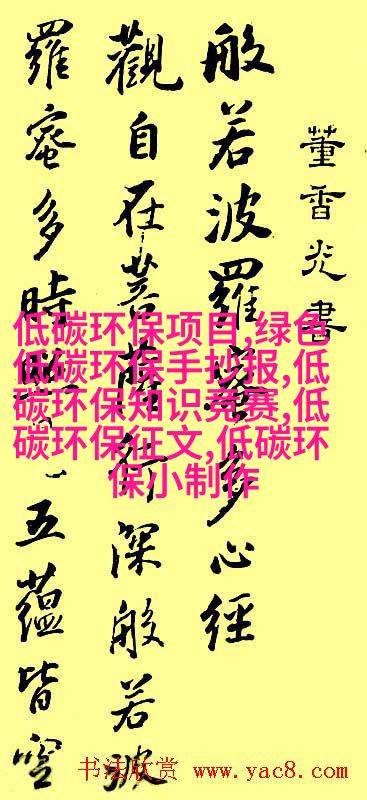 董香光書
般若波羅蜜多心經
觀自在菩薩行深般若波
羅蜜多時照五蘊皆空
低碳环保项目,绿色
低碳环保手抄报,低
碳环保知识竞赛,低
碳环保征文,低碳环
保小制作
书法欣赏 www.yac8.com